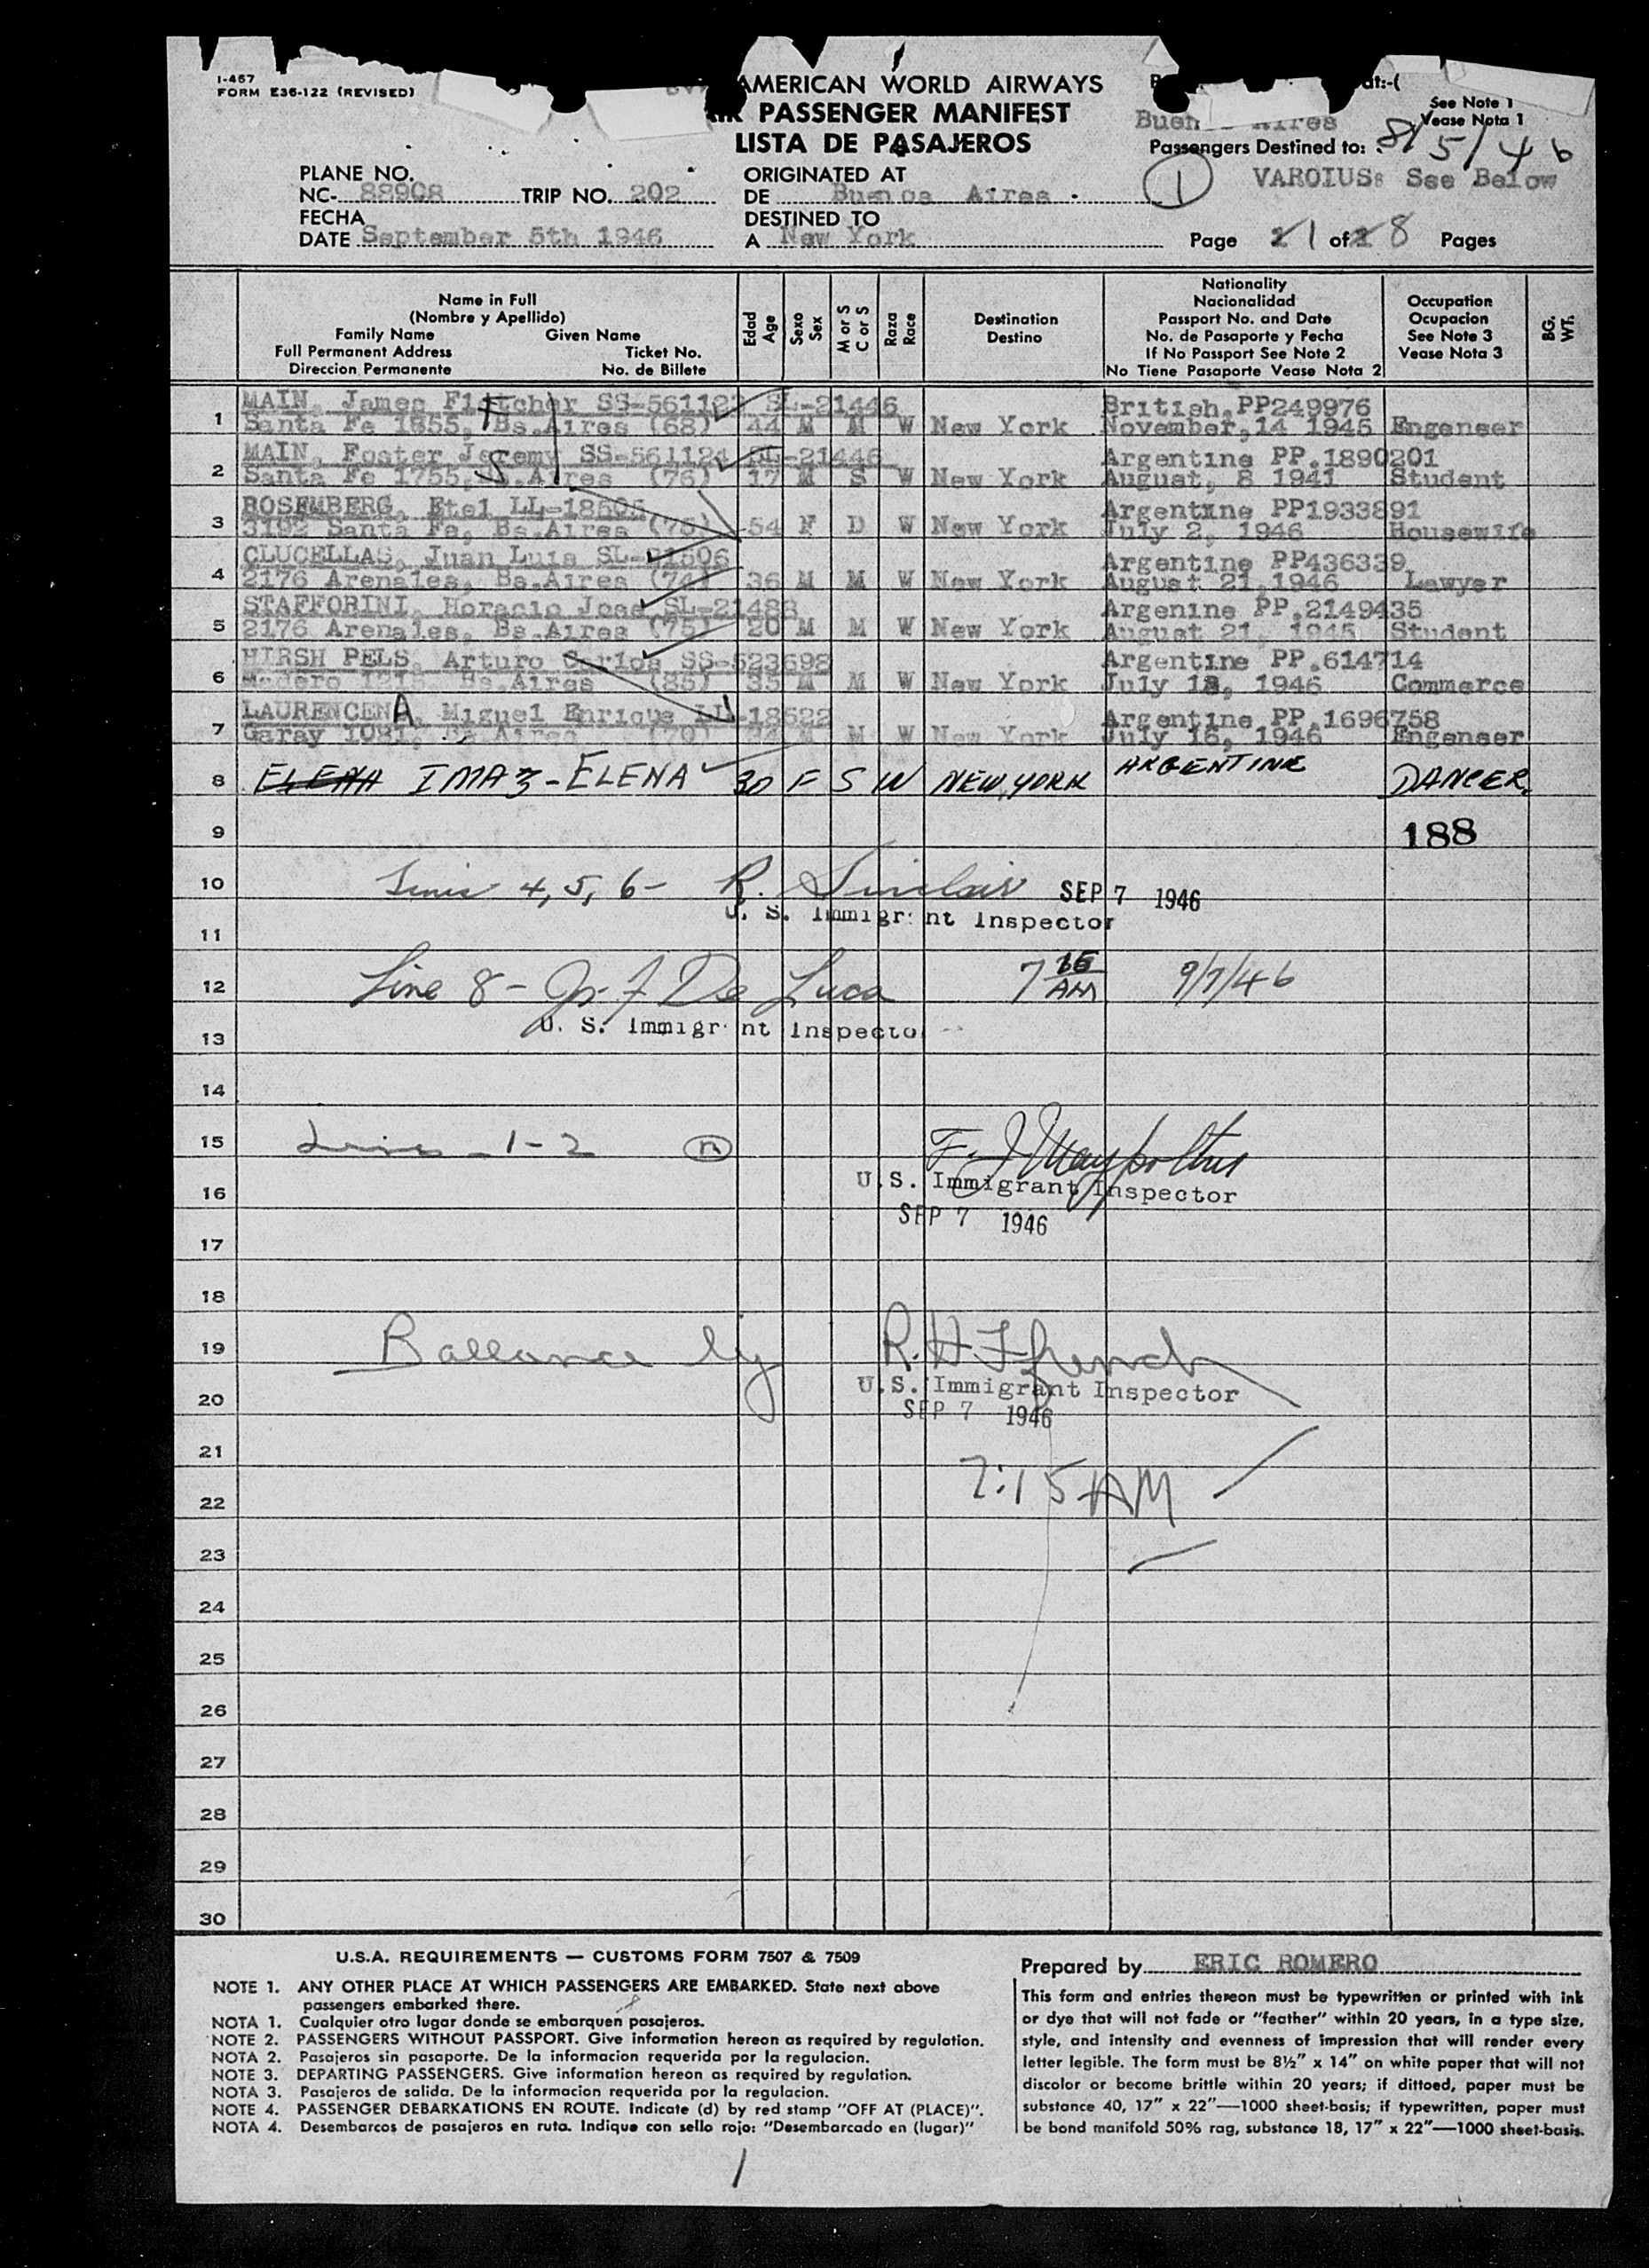 I-457
FORM E36-122 (REVISED)
AMERICAN WORLD AIRWAYS
PASSENGER MANIFEST
LISTA DE PASAJEROS
See Note 1
Vease Nota 1
Passengers Destined to: 8/5/46
VAROIUS: See Below
1
PLANE NO.
NC- 88908 TRIP NO. 202
FECHA
DATE September 5th 1946
ORIGINATED AT
DE Buenos Aires
DESTINED TO
A New York
Page 1 of 8 Pages
Name in Full
(Nombre y Apellido)
Family Name Given Name
Full Permanent Address Ticket No.
Direccion Permanente No. de Billete
Edad
Age
Sexo
Sex
M or S
C or S
Raza
Race
Destination
Destino
Nationality
Nacionalidad
Passport No. and Date
No. de Pasaporte y Fecha
If No Passport See Note 2
No Tiene Pasaporte Vease Nota 2
Occupation
Ocupacion
See Note 3
Vease Nota 3
BG.
WT.
MAIN, James Fletcher SS-561123 SL-21446 British, PP249976
1 Santa Fe 1855, Bs.Aires (68) 44 M M W New York November, 14 1945 Engeneer
MAIN, Foster Jeremy SS-561124 SL-21446 Argentine PP.1890201
2 Santa Fe 1755, Bs.Aires (76) 17 M S W New York August, 8 1941 Student
ROSEMBERG, Etel LL-18505 Argentine PP1933891
3 3192 Santa Fe, Bs.Aires (75) 54 F D W New York July 2, 1946 Housewife
CLUCELLAS, Juan Luis SL-21506 Argentine PP436339
4 2176 Arenales, Bs.Aires (74) 36 M M W New York August 21, 1946 Lawyer
STAFFORINI, Horacio Jose SL-21488 Argenine PP.2149435
5 2176 Arenales, Bs.Aires (75) 20 M M W New York August 21, 1945 Student
HIRSH PELS, Arturo Carlos SS-523698 Argentine PP.614714
6 Madero Bs.Aires (85) 35 M M W New York July 18, 1946 Commerce
LAURENCENA, Miguel Enrique LL-18522 Argentine PP.1696758
7 Garay 1081, Bs Aires (70) M M W New York July 16, 1946 Engeneer
8 ELENA IMAZ-ELENA 30 F S W NEW YORK ARGENTINE DANCER.
9 188
10 Lines 4, 5, 6- R. Sinclair SEP 7 1946
U. S. Immigrant Inspector
11
12 Line 8- De Luca 7 15 AM 9/7/46
U. S. Immigrant Inspector
13
14
15 Lines 1-2 n
U.S. Immigrant Inspector
16
SEP 7 1946
17
18
19 Ballance by
U.S. Immigrant Inspector
20
SEP 7 1946
21
22 7:15 AM
23
24
25
26
27
28
29
30
U.S.A. REQUIREMENTS — CUSTOMS FORM 7507 & 7509
NOTE 1. ANY OTHER PLACE AT WHICH PASSENGERS ARE EMBARKED. State next above
passengers embarked there.
NOTA 1. Cualquier otro lugar donde se embarquen pasajeros.
NOTE 2. PASSENGERS WITHOUT PASSPORT. Give information hereon as required by regulation.
NOTA 2. Pasajeros sin pasaporte. De la informacion requerida por la regulacion.
NOTE 3. DEPARTING PASSENGERS. Give information hereon as required by regulation.
NOTA 3. Pasajeros de salida. De la informacion requerida por la regulacion.
NOTE 4. PASSENGER DEBARKATIONS EN ROUTE. Indicate (d) by red stamp "OFF AT (PLACE)".
NOTA 4. Desembarcos de pasajeros en ruta. Indique con sello rojo: "Desembarcado en (lugar)"
Prepared by ERIC ROMERO
This form and entries thereon must be typewritten or printed with ink
or dye that will not fade or "feather" within 20 years, in a type size,
style, and intensity and evenness of impression that will render every
letter legible. The form must be 8½" x 14" on white paper that will not
discolor or become brittle within 20 years; if dittoed, paper must be
substance 40, 17" x 22"—1000 sheet-basis; if typewritten, paper must
be bond manifold 50% rag, substance 18, 17" x 22"—1000 sheet-basis.
1